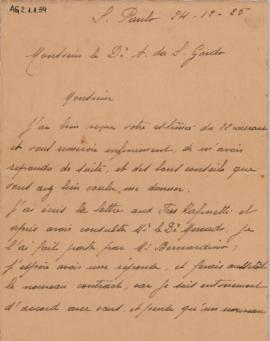 AG2.1.1.94
S. Paulo 24-12-25
Monsieur le Dr A. de S. Gordo
Monsieur
J'ai bien reçu votre estimée du 22 courant
et vous remercie infiniment, de m'avoir
repondu de suite, et des bons conseils que
vous avez bien voulu me donner.
J'ai écris la lettre aux Tres
après avoir consulté Mr le Dr je
l'ai fait porter par Mr Bernardino;
j'espère avoir une réponse, et ferais aussitôt
le nouveau contract, car je suis entièrement
d'accord avec vous, et parle qu'un nouveau